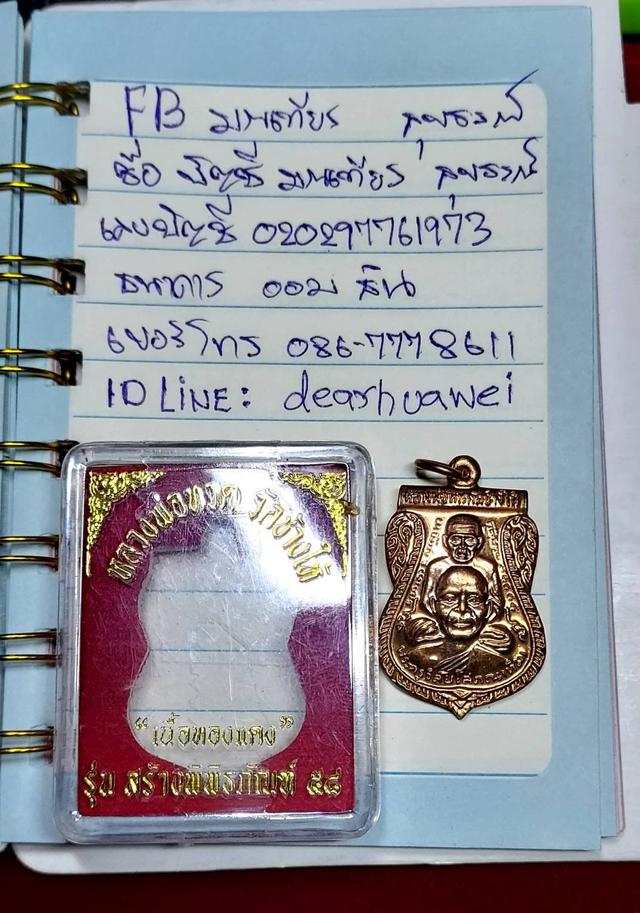 FB มณเฑียร สุพรรณ์
ชื่อ บัญชี มณเฑียร สุพรรณ์
เลขบัญชี 020297761973
ธนาคาร ออม สิน
เบอร์โทร 086-7778611
ID LINE: dearhuawei
หลวงพ่อทวด วัดช้างให้
"เนื้อทองแดง"
รุ่น สร้างพิพิธภัณฑ์ ๕๘